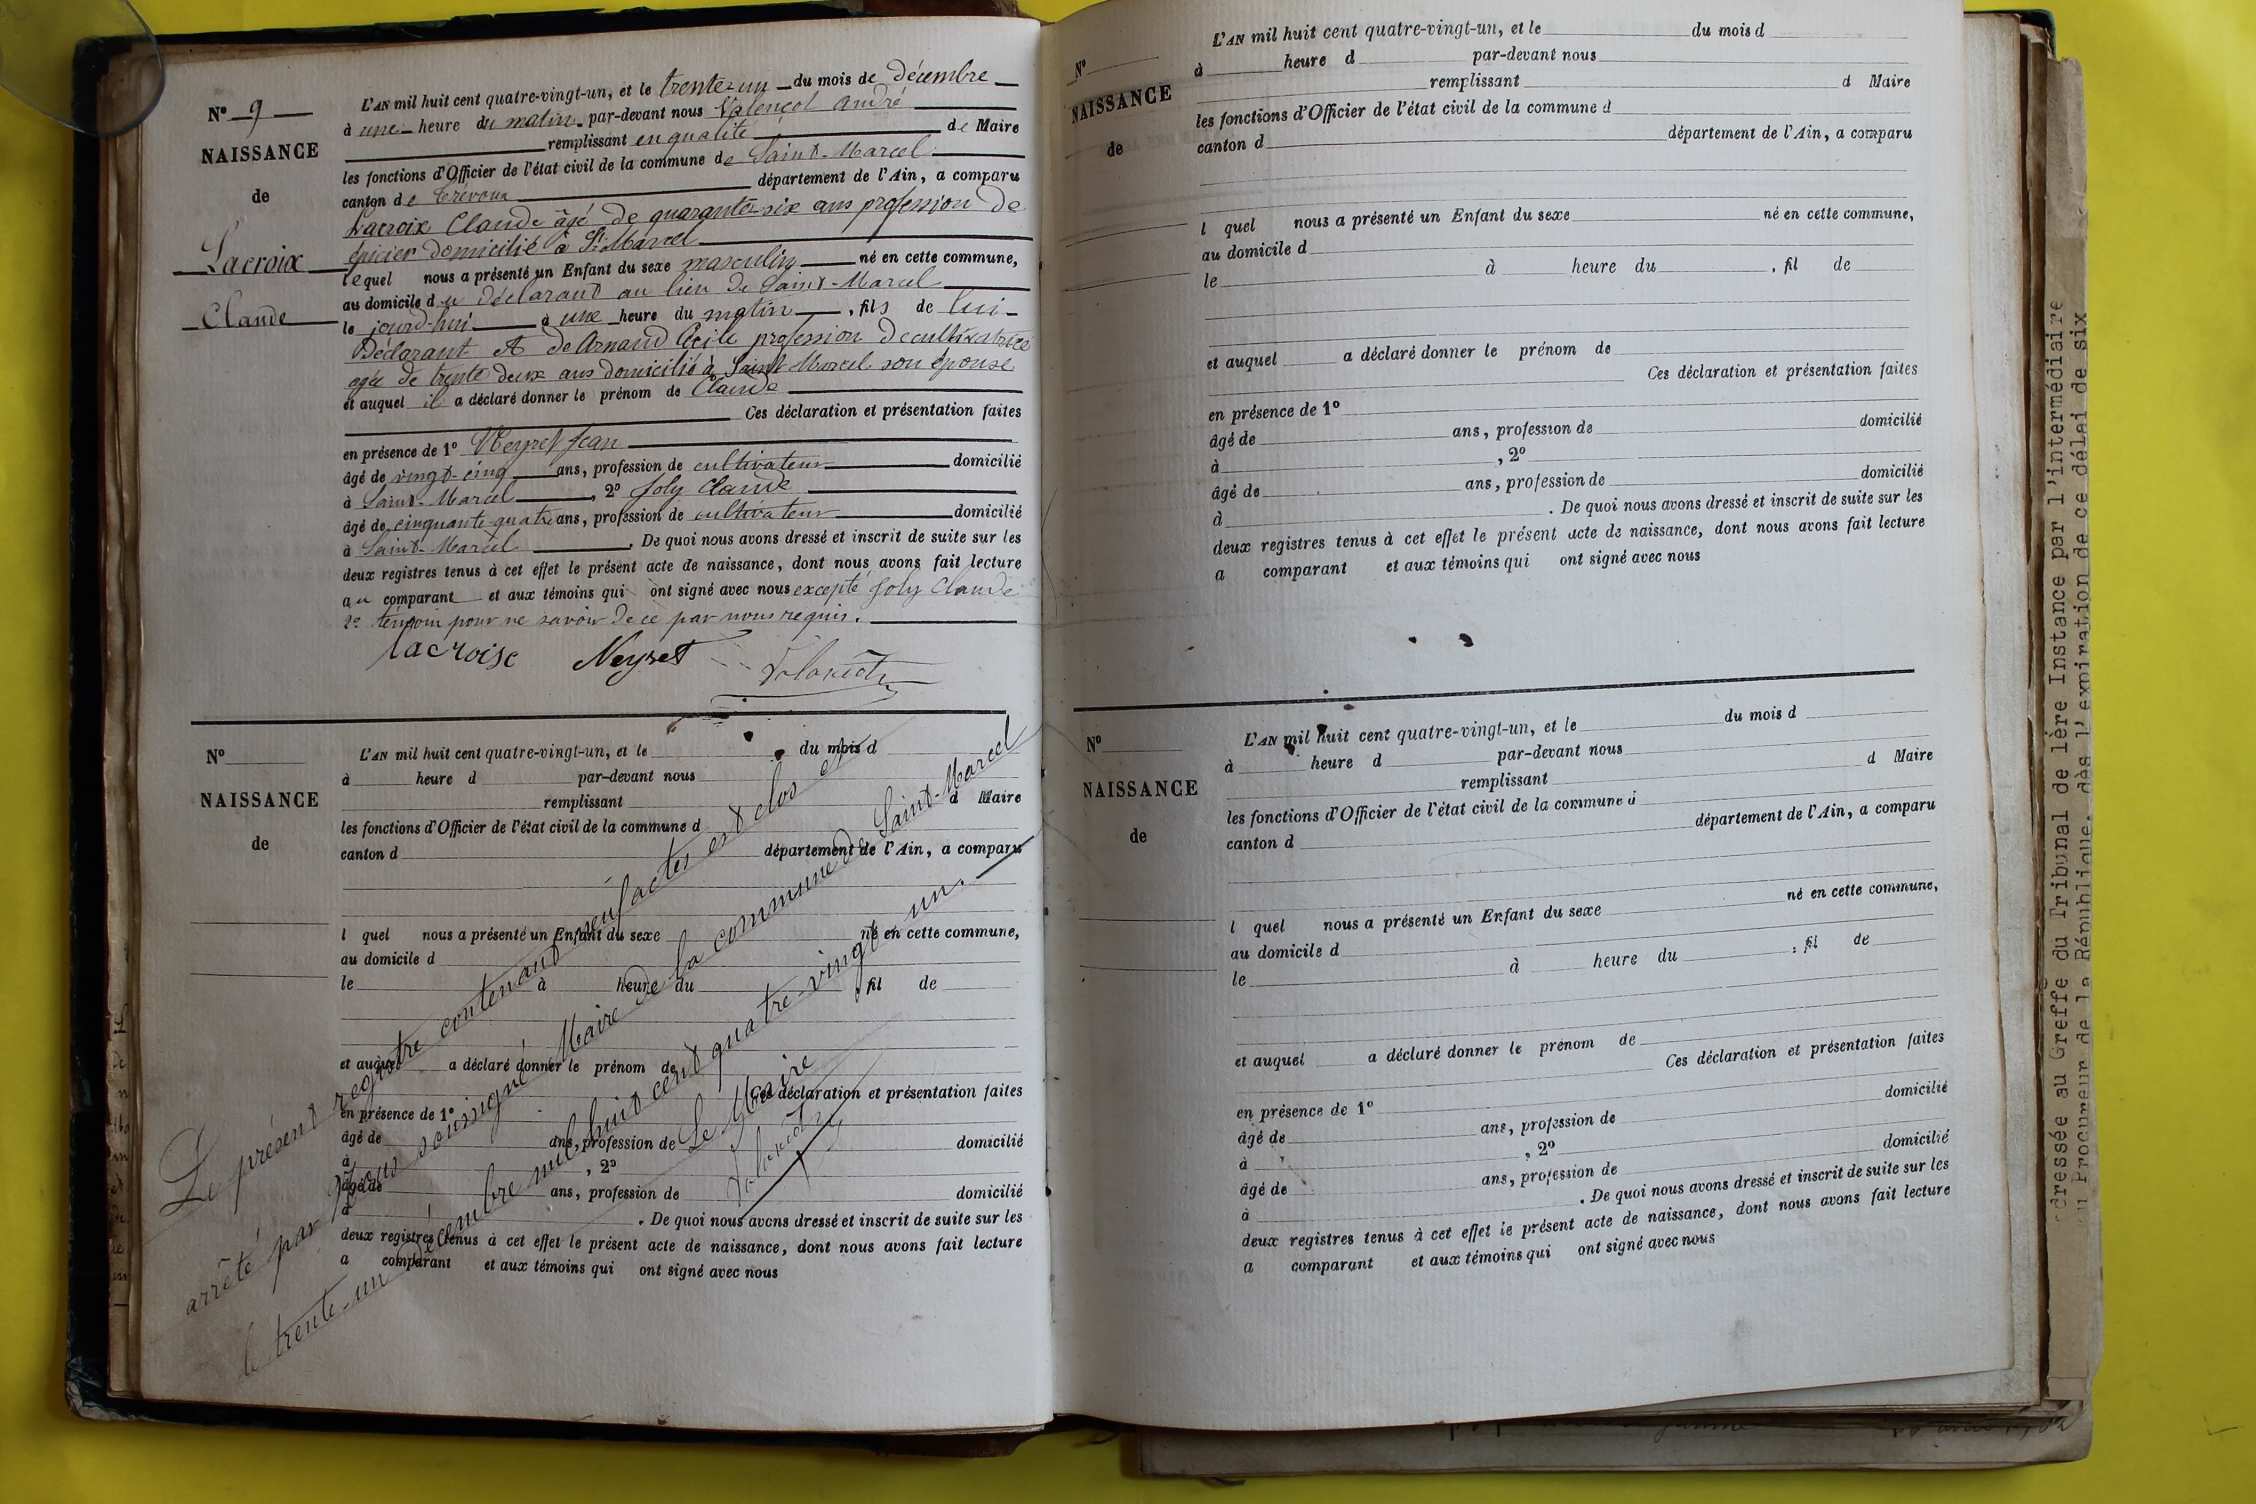 N° 9
NAISSANCE
de
Lacroix
Claude
L'AN mil huit cent quatre-vingt-un, et le trente-un du mois de décembre
à une heure du matin par-devant nous Valençot andré
remplissant en qualité de Maire
les fonctions d'Officier de l'état civil de la commune de Saint-Marcel
canton de Trévoux département de l'Ain, a comparu
Lacroix Claude âgé de quarante-six ans profession de
épicier domicilié à St Marcel
lequel nous a présenté un Enfant du sexe masculin né en cette commune,
au domicile du déclarant au lieu de Saint-Marcel
le jourd-hui à une heure du matin, fils de lui-
Déclarant et de Arnaud Cécile profession de cultivatrice
agée de trente deux ans domicilié à Saint Marcel son épouse
et auquel il a déclaré donner le prénom de Claude
Ces déclaration et présentation faites
en présence de 1° Neyret Jean
âgé de vingt-cinq ans, profession de cultivateur domicilié
à Saint-Marcel, 2° Joly Claude
âgé de cinquante-quatre ans, profession de cultivateur domicilié
à Saint-Marcel. De quoi nous avons dressé et inscrit de suite sur les
deux registres tenus à cet effet le présent acte de naissance, dont nous avons fait lecture
au comparant et aux témoins qui ont signé avec nous excepté Joly Claude
2e témoin pour ne savoir de ce par nous requis.
lacroise Neyret
N°
NAISSANCE
de
L'AN mil huit cent quatre-vingt-un, et le du mois d
à heure d par-devant nous
remplissant d Maire
les fonctions d'Officier de l'état civil de la commune d
canton d département de l'Ain, a comparu
l quel nous a présenté un Enfant du sexe né en cette commune,
au domicile d
le à heure du , fil de
et auquel a déclaré donner le prénom de
Ces déclaration et présentation faites
en présence de 1°
âgé de ans, profession de domicilié
à , 2°
âgé de ans, profession de domicilié
à . De quoi nous avons dressé et inscrit de suite sur les
deux registres tenus à cet effet le présent acte de naissance, dont nous avons fait lecture
a comparant et aux témoins qui ont signé avec nous
Le présent registre contenant neuf actes est clos et
arrêté par nous soussigné Maire de la commune de Saint-Marcel
le trente-un décembre mil huit cent quatre-vingt un.
Le Maire
N°
NAISSANCE
de
L'AN mil huit cent quatre-vingt-un, et le du mois d
à heure d par-devant nous
remplissant d Maire
les fonctions d'Officier de l'état civil de la commune d
canton d département de l'Ain, a comparu
l quel nous a présenté un Enfant du sexe né en cette commune,
au domicile d
le à heure du , fil de
et auquel a déclaré donner le prénom de
Ces déclaration et présentation faites
en présence de 1°
âgé de ans, profession de domicilié
à , 2°
âgé de ans, profession de domicilié
à . De quoi nous avons dressé et inscrit de suite sur les
deux registres tenus à cet effet le présent acte de naissance, dont nous avons fait lecture
a comparant et aux témoins qui ont signé avec nous
N°
NAISSANCE
de
L'AN mil huit cent quatre-vingt-un, et le du mois d
à heure d par-devant nous
remplissant d Maire
les fonctions d'Officier de l'état civil de la commune d
canton d département de l'Ain, a comparu
l quel nous a présenté un Enfant du sexe né en cette commune,
au domicile d
le à heure du , fil de
et auquel a déclaré donner le prénom de
Ces déclaration et présentation faites
en présence de 1°
âgé de ans, profession de domicilié
à , 2°
âgé de ans, profession de domicilié
à . De quoi nous avons dressé et inscrit de suite sur les
deux registres tenus à cet effet le présent acte de naissance, dont nous avons fait lecture
a comparant et aux témoins qui ont signé avec nous
dressée au Greffe du Tribunal de 1ère Instance par l'intermédiaire
du Procureur de la République, dès l'expiration de ce délai de six